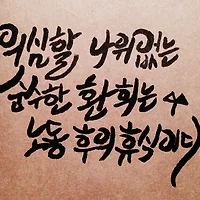 의심할 나위없는
순수한 환희는
노동 후의 휴식이다